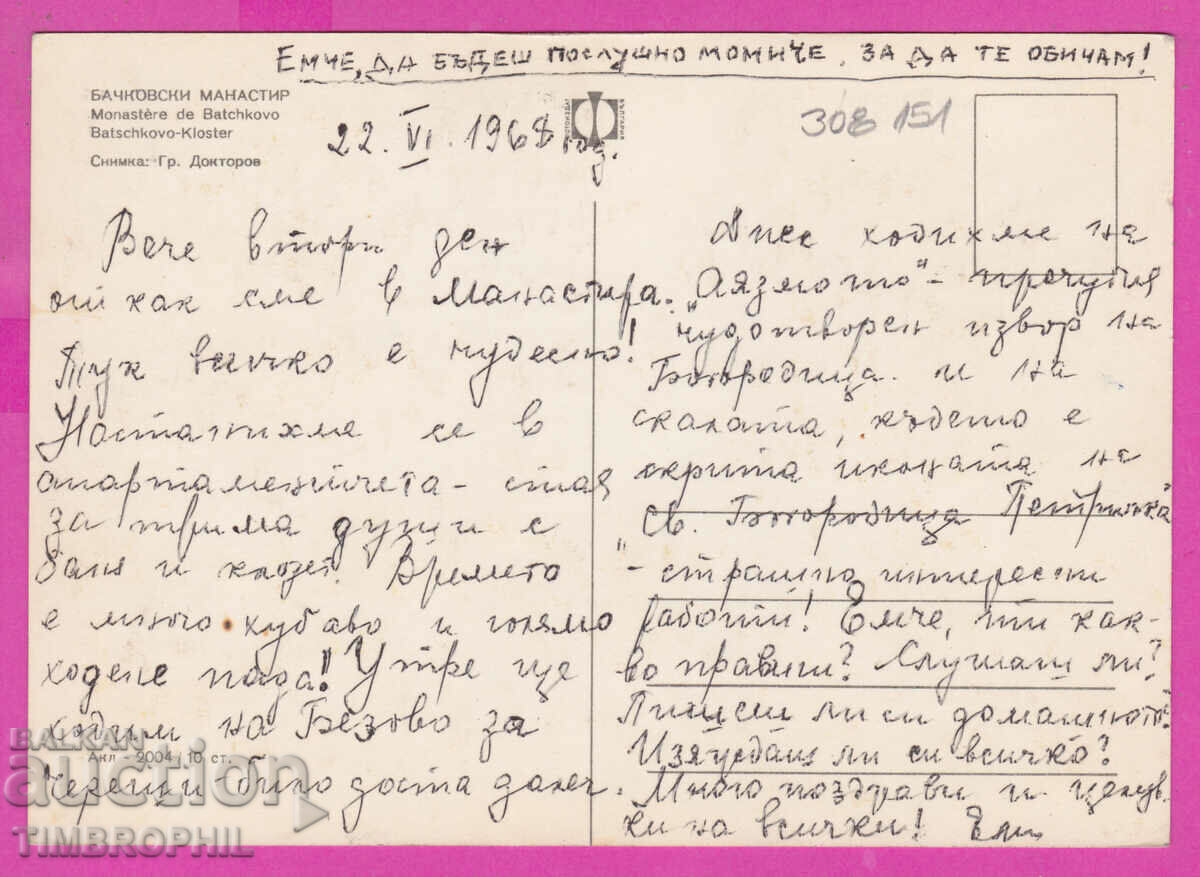 Емче, да бъдеш послушно момиче. за да те обичам!
БАЧКОВСКИ МАНАСТИР
Monastère de Batchkovo
Batschkovo-Kloster
Снимка: Гр. Докторов
ФОТОИЗДАТ БЪЛГАРИЯ
308 151
22. VI. 1968 год.
Вече втори ден
откак сме в Манастира.
Тук всичко е чудесно!
Настанихме се в
апартаментчета - стая
за трима души с
баня и клозет. Времето
е много хубаво и голямо
ходене пада! Утре ще
ходим на Безово за
череши било доста далеч.
Акл - 2004 / 10 ст.
Днес ходихме на
"Аязмото" - прочутия
чудотворен извор на
Богородица и на
скалата, където е
скрита иконата на
св. Богородица
- страшно интересни
работи! Емче, ти как-
во правиш? Слушаш ли?
Пишеш ли си домашното?
Изяждаш ли си всичко?
Много поздрави и целув-
ки на всички! Ели
BALKAN
auction
TIMBROPHIL